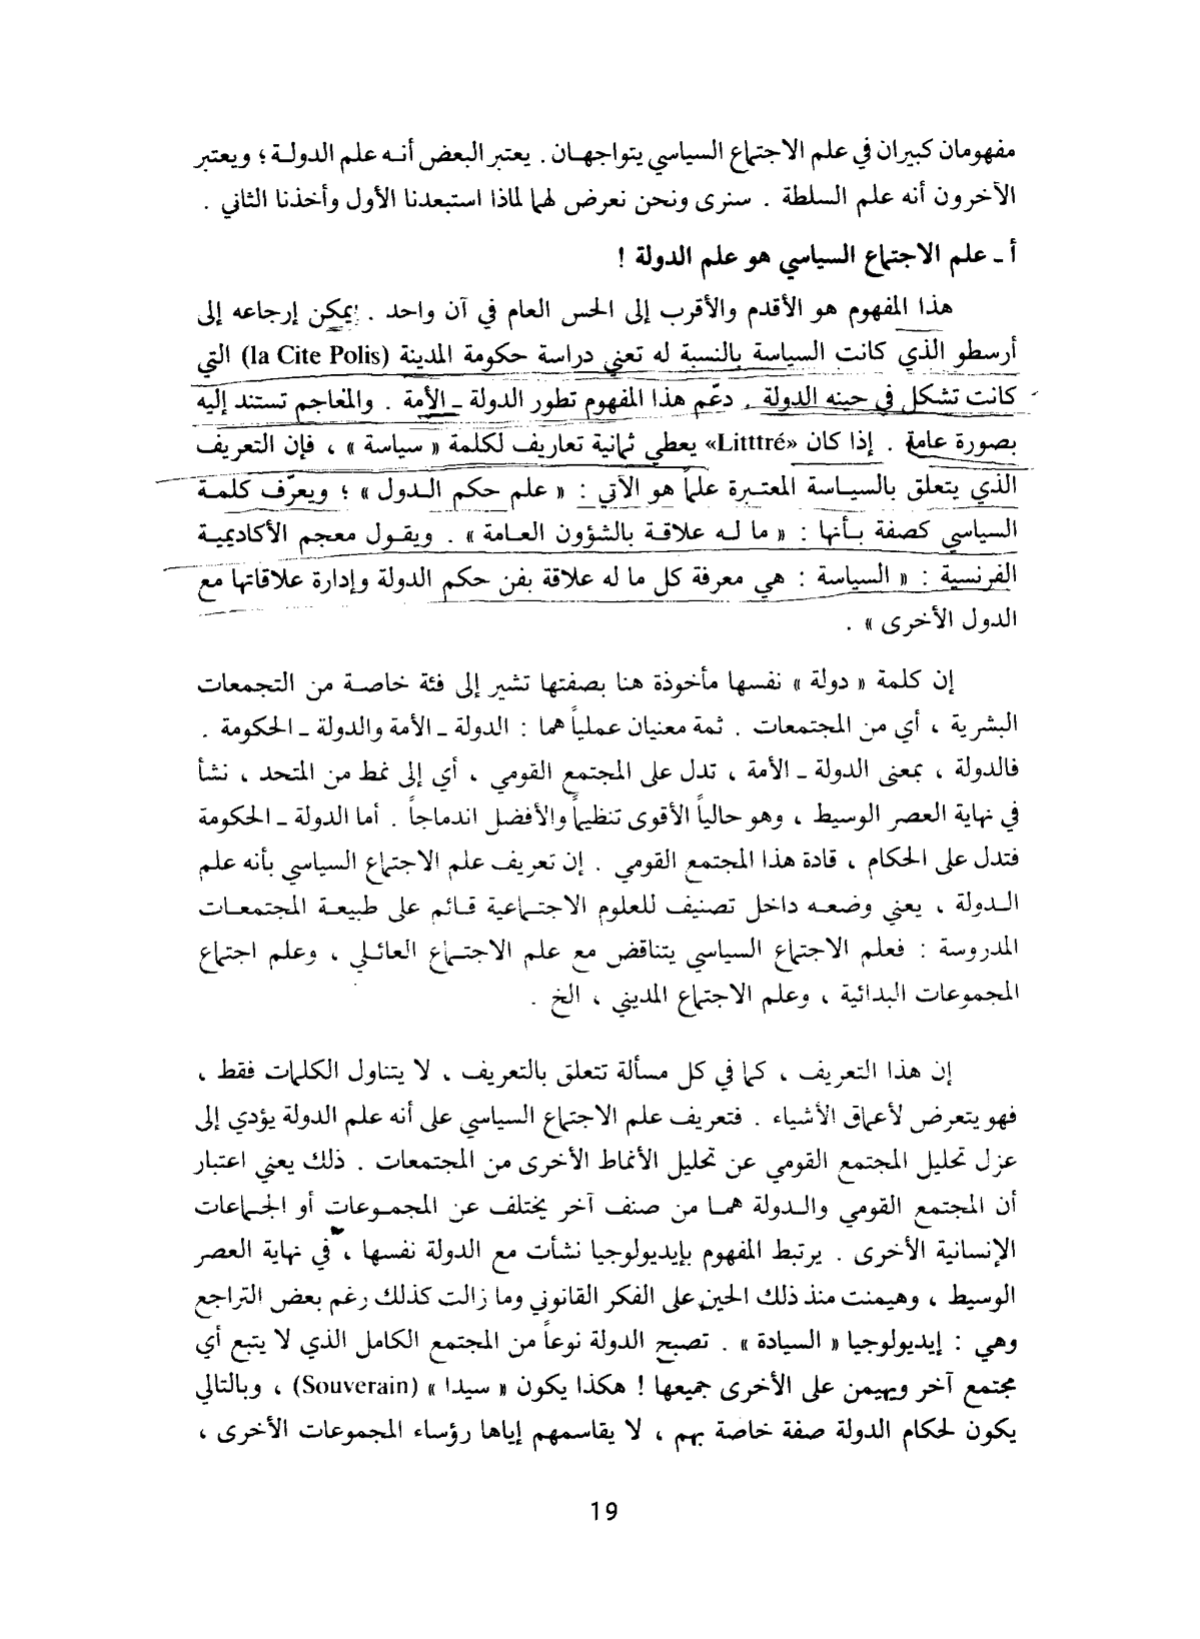 مفهومان كبيران في علم الاجتماع السياسي يتواجهـان . يعتبر البعض أنـه علم الدولـة ؛ ويعتبر
الآخرون أنه علم السلطة . سنرى ونحن نعرض لهما لماذا استبعدنا الأول وأخذنا الثاني .
أ ـ علم الاجتماع السياسي هو علم الدولة !
هذا المفهوم هو الأقدم والأقرب إلى الحس العام في آن واحد . يمكن إرجاعه إلى
أرسطو الذي كانت السياسة بالنسبة له تعني دراسة حكومة المدينة (la Cite Polis) التي
كانت تشكل في حينه الدولة . دعّم هذا المفهوم تطور الدولة ـ الأمة . والمعاجم تستند إليه
بصورة عامة . إذا كان «Litttré» يعطي ثمانية تعاريف لكلمة « سياسة » ، فإن التعريف
الذي يتعلق بالسيـاسة المعتـبرة علماً هو الآتي : « علم حكم الـدول » ؛ ويعرّف كلمـة
السياسي كصفة بـأنها : « ما لـه علاقـة بالشؤون العـامة » . ويقـول معجم الأكاديميـة
الفرنسية : « السياسة : هي معرفة كل ما له علاقة بفن حكم الدولة وإدارة علاقاتها مع
الدول الأخرى » .
إن كلمة « دولة » نفسها مأخوذة هنا بصفتها تشير إلى فئة خاصـة من التجمعات
البشرية ، أي من المجتمعات . ثمة معنيان عملياً هما : الدولة ـ الأمة والدولة ـ الحكومة .
فالدولة ، بمعنى الدولة ـ الأمة ، تدل على المجتمع القومي ، أي إلى نمط من المتحد ، نشأ
في نهاية العصر الوسيط ، وهو حالياً الأقوى تنظيماً والأفضل اندماجاً . أما الدولة ـ الحكومة
فتدل على الحكام ، قادة هذا المجتمع القومي . إن تعريف علم الاجتماع السياسي بأنه علم
الـدولة ، يعني وضعـه داخل تصنيف للعلوم الاجتـماعية قـائم على طبيعـة المجتمعـات
المدروسة : فعلم الاجتماع السياسي يتناقض مع علم الاجتـماع العائـلي ، وعلم اجتماع
المجموعات البدائية ، وعلم الاجتماع المديني ، الخ .
إن هذا التعريف ، كما في كل مسألة تتعلق بالتعريف ، لا يتناول الكلمات فقط ،
فهو يتعرض لأعماق الأشياء . فتعريف علم الاجتماع السياسي على أنه علم الدولة يؤدي إلى
عزل تحليل المجتمع القومي عن تحليل الأنماط الأخرى من المجتمعات . ذلك يعني اعتبار
أن المجتمع القومي والـدولة همـا من صنف آخر يختلف عن المجمـوعات أو الجـماعات
الإنسانية الأخرى . يرتبط المفهوم بإيديولوجيا نشأت مع الدولة نفسها ، في نهاية العصر
الوسيط ، وهيمنت منذ ذلك الحين على الفكر القانوني وما زالت كذلك رغم بعض التراجع
وهي : إيديولوجيا « السيادة » . تصبح الدولة نوعاً من المجتمع الكامل الذي لا يتبع أي
مجتمع آخر ويهيمن على الأخرى جميعها ! هكذا يكون « سيدا » (Souverain) ، وبالتالي
يكون لحكام الدولة صفة خاصة بهم ، لا يقاسمهم إياها رؤساء المجموعات الأخرى ،
19